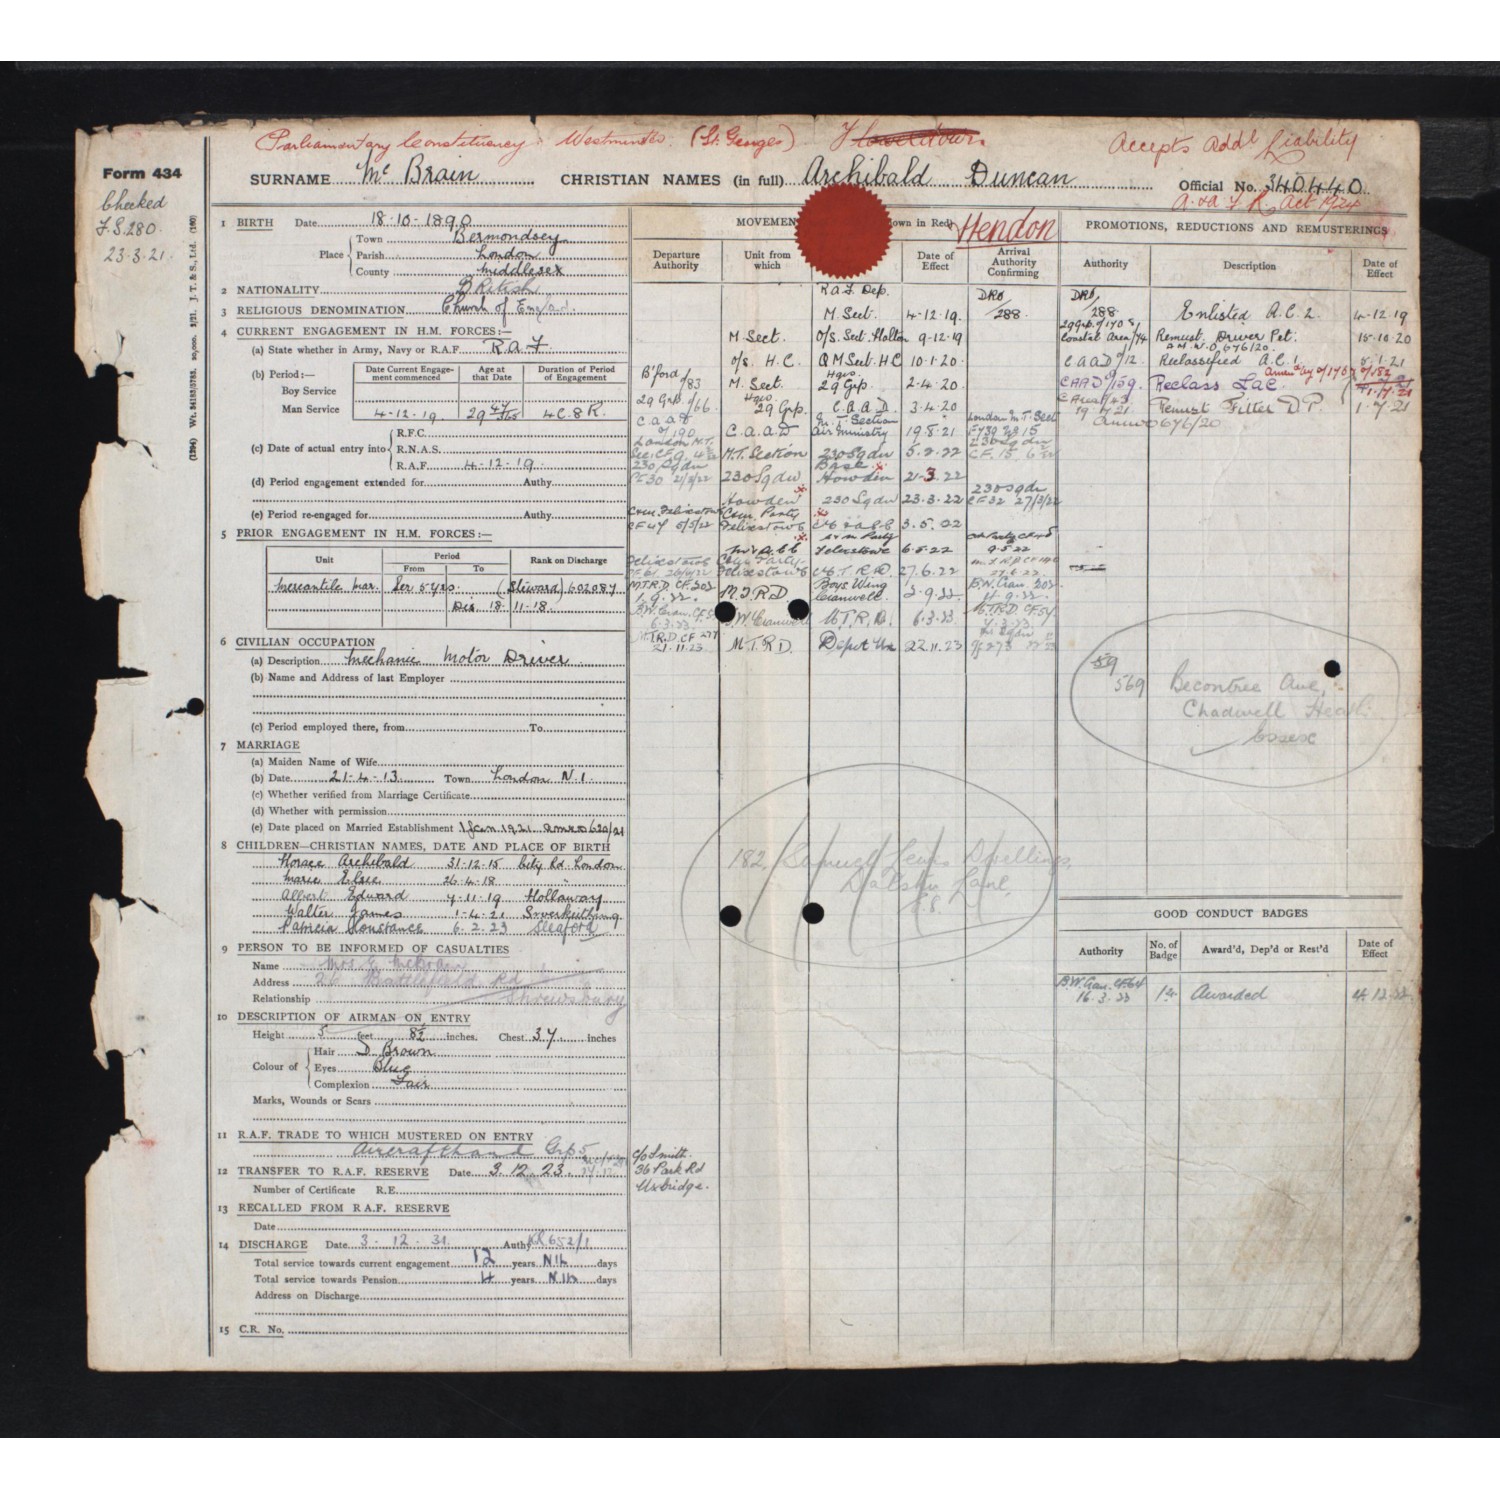 Parliamentary Constituency. Westminster (St. Georges)
Accepts Addl Liability
Form 434
SURNAME Mc Brain CHRISTIAN NAMES (in full) Archibald Duncan Official No. 340440
A. & A. F. R. Act 1924
Checked
F.S. 280.
23.3.21.
1 BIRTH Date 18-10-1890
Place Town Bermondsey
Parish London
County Middlesex
2 NATIONALITY British
3 RELIGIOUS DENOMINATION Church of England
4 CURRENT ENGAGEMENT IN H.M. FORCES:—
(a) State whether in Army, Navy or R.A.F. R.A.F
(b) Period:— Date Current Engagement commenced Age at that Date Duration of Period of Engagement
Boy Service
Man Service 4-12-19. 29 4C.8R.
(c) Date of actual entry into R.F.C.
R.N.A.S.
R.A.F. 4-12-19.
(d) Period engagement extended for Authy.
(e) Period re-engaged for Authy.
5 PRIOR ENGAGEMENT IN H.M. FORCES:—
Unit Period From To Rank on Discharge
Mercantile Mar. Ser. 5 yrs. (Steward) 602087
Dis. 18-11-18.
6 CIVILIAN OCCUPATION
(a) Description Mechanic Motor Driver
(b) Name and Address of last Employer
(c) Period employed there, from To
7 MARRIAGE
(a) Maiden Name of Wife
(b) Date 21-4-13. Town London N.1.
(c) Whether verified from Marriage Certificate
(d) Whether with permission
(e) Date placed on Married Establishment 1 Jan 1921 AMWO 620/21
8 CHILDREN—CHRISTIAN NAMES, DATE AND PLACE OF BIRTH
Horace Archibald 31-12-15 City Rd. London
Marie Elsie 26-4-18 "
Albert Edward 7-11-19 Holloway
Walter James 1-4-21 Inverkeithing
Patricia Constance 6.2.23 Sleaford
9 PERSON TO BE INFORMED OF CASUALTIES
Name Mrs E. McBrain
Address 26 Battlefield Rd
Relationship Shrewsbury
10 DESCRIPTION OF AIRMAN ON ENTRY
Height 5 feet 8½ inches. Chest 37 inches
Colour of Hair D Brown
Eyes Blue
Complexion Fair
Marks, Wounds or Scars
11 R.A.F. TRADE TO WHICH MUSTERED ON ENTRY
Aircrafthand Grp 5
12 TRANSFER TO R.A.F. RESERVE Date 3.12.23
Number of Certificate R.E.
13 RECALLED FROM R.A.F. RESERVE
Date
14 DISCHARGE Date 3-12-31 Authy KR 652/1
Total service towards current engagement 12 years Nil days
Total service towards Pension 4 years Nil days
Address on Discharge
15 C.R. No.
Hendon
Departure Authority Unit from which Date of Effect Arrival Authority Confirming
R.A.F. Dep.
M. Sect. 4-12-19. DRO/288
M. Sect. O/S. Sect. Halton 9-12-19
O/S. H.C. QM Sect. H C 10-1-20.
B'ford/83 M. Sect. Hqrs 29 Grp. 2-4-20.
29 Grp./66 Hqrs 29 Grp. C.A.A.D. 3.4.20
C.A.A.D M.T. Section Air Ministry 19.8.21
M.T. Section 230 Sqdn 5.2.22
230 Sqdn Base Howden 21-3.22
Howden 230 Sqdn 23.3.22 230 Sqdn CF32 27/3/22
Com. Party Felixstowe 3.5.22
Felixstowe 6.5.22
Felixstowe M.T.R.D. 27.6.22
M.T.R.D. CF.202 1.9.22. M.T.R.D. Boys Wing Cranwell. 2.9.22.
6.3.23. B.W. Cranwell M.T.R.D. 6.3.23
M.T.R.D. CF 277 21.11.23 M.T.R.D. Depot Ux 22.11.23
c/o Smith.
36 Park Rd
Uxbridge.
182, Samuel Lewis Dwellings,
Dalston Lane,
PROMOTIONS, REDUCTIONS AND REMUSTERINGS
Authority Description Date of Effect
DRO/288 Enlisted A.C.2. 4-12-19
Coastal Area/74 Remust. Driver Pet. 15-10-20
A.M.W.O. 676/20.
C A A D 9/12. Reclassified A.C.1. 5-1-21
CAAD/159. Reclass LAC.
19.7.21 Remust Fitter D.P. 1.7.21
Amwo 676/20
569 Becontree Ave,
Chadwell Heath
Essex
GOOD CONDUCT BADGES
Authority No. of Badge Award'd, Dep'd or Rest'd Date of Effect
16.3.23 1st Awarded 4.12.22.